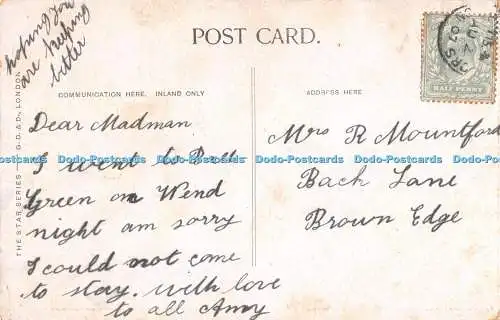 hoping you
are keeping
better
POST CARD.
COMMUNICATION HERE. INLAND ONLY
ADDRESS HERE.
HALF PENNY
THE STAR SERIES G.D.&D., LONDON.
Dear Madman
I went to Ball
Green on Wend
night am sorry
I could not come
to stay. with love
to all Amy
Mrs R Mountford
Back Lane
Brown Edge
Dodo-Postcards Dodo-Postcards Dodo-Postcards Dodo-Postcards Dodo-Postcards